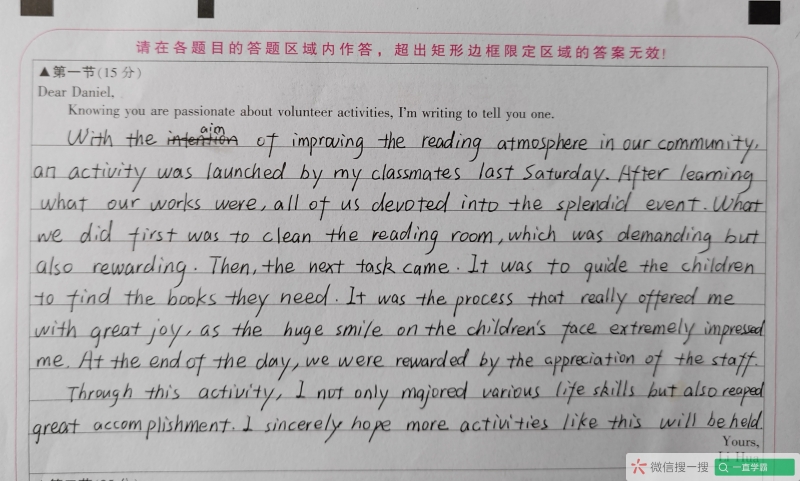 请在各题目的答题区域内作答，超出矩形边框限定区域的答案无效!
▲第一节(15分)
Dear Daniel,
Knowing you are passionate about volunteer activities, I'm writing to tell you one.
With the intention aim of improving the reading atmosphere in our community,
an activity was launched by my classmates last Saturday. After learning
what our works were, all of us devoted into the splendid event. What
we did first was to clean the reading room, which was demanding but
also rewarding. Then, the next task came. It was to guide the children
to find the books they need. It was the process that really offered me
with great joy, as the huge smile on the children's face extremely impressed
me. At the end of the day, we were rewarded by the appreciation of the staff.
Through this activity, I not only majored various life skills but also reaped
great accomplishment. I sincerely hope more activities like this will be held.
Yours,
Li Hua
微信搜一搜 一直学霸